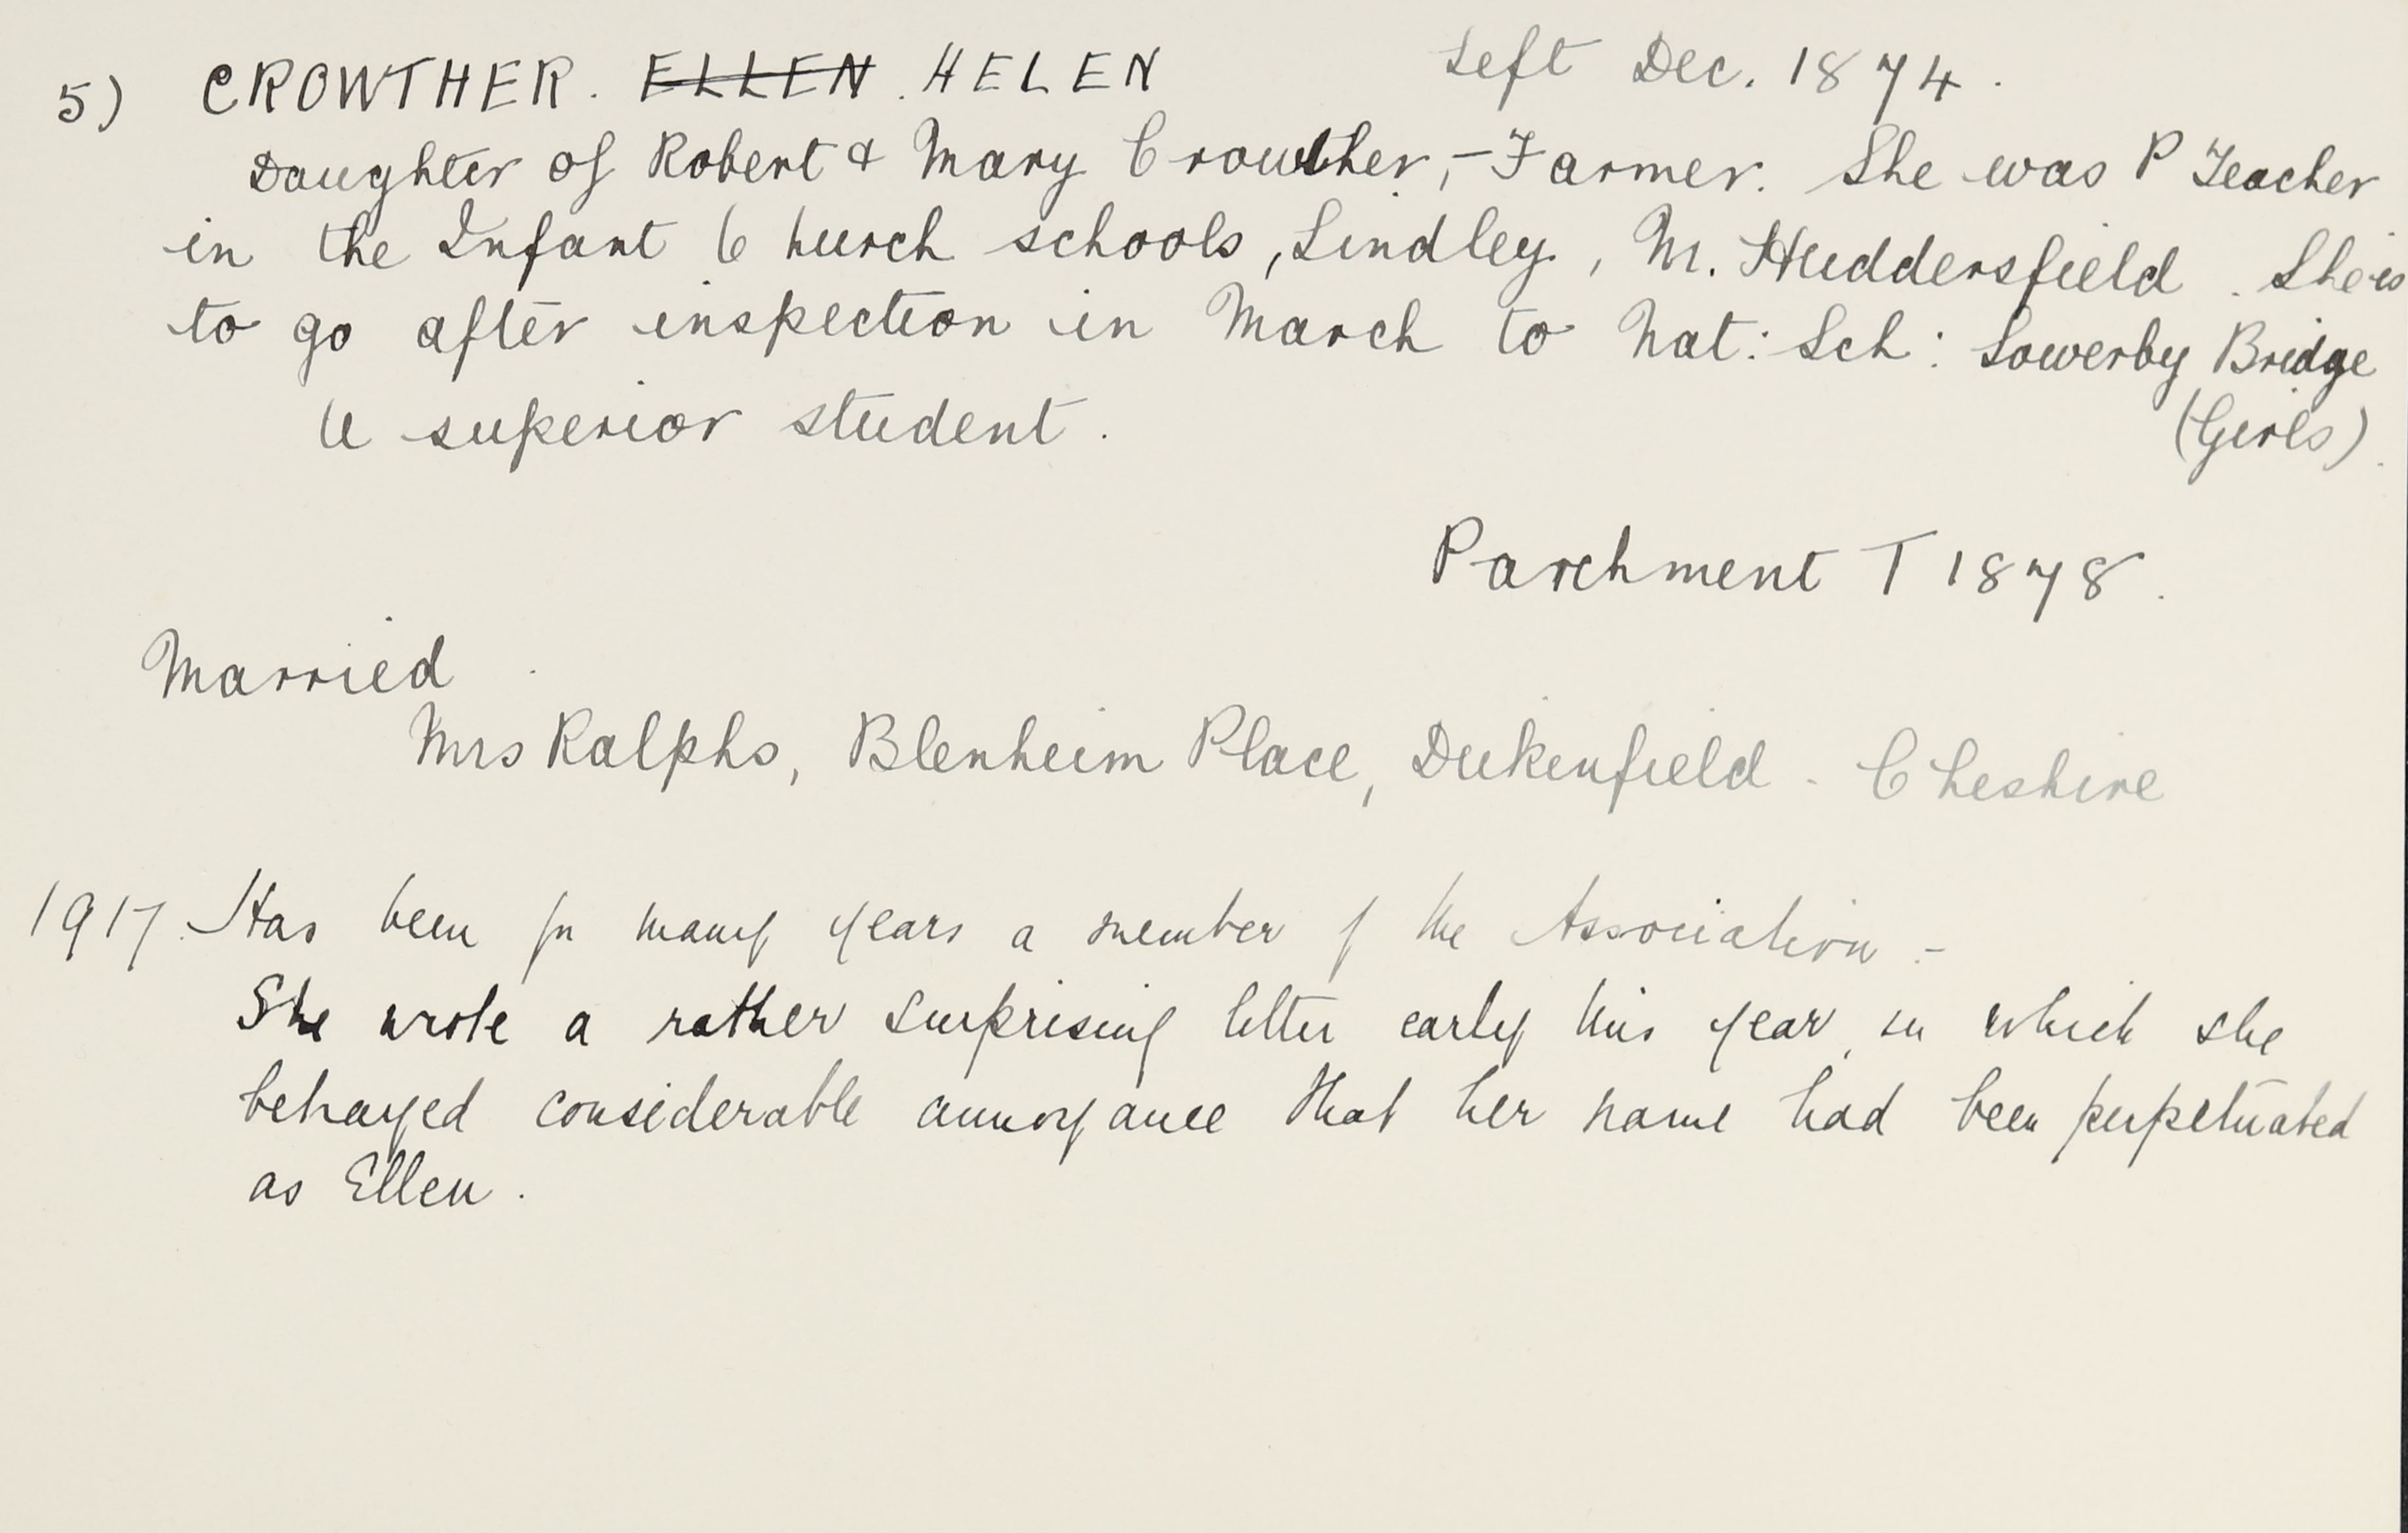 5) CROWTHER. ~~ELLEN~~. HELEN Left Dec. 1874.
Daughter of Robert & Mary Crowther, - Farmer. She was P Teacher
in the Infant Church schools, Lindley, N. Huddersfield. She is
to go after inspection in March to Nat: Sch: Sowerby Bridge
(Girls).
A superior student.
Parchment T 1878.
Married.
Mrs Ralphs, Blenheim Place, Dukenfield. Cheshire
1917. Has been for many years a member of the Association. -
She wrote a rather surprising letter early this year, in which she
betrayed considerable annoyance that her name had been perpetuated
as Ellen.